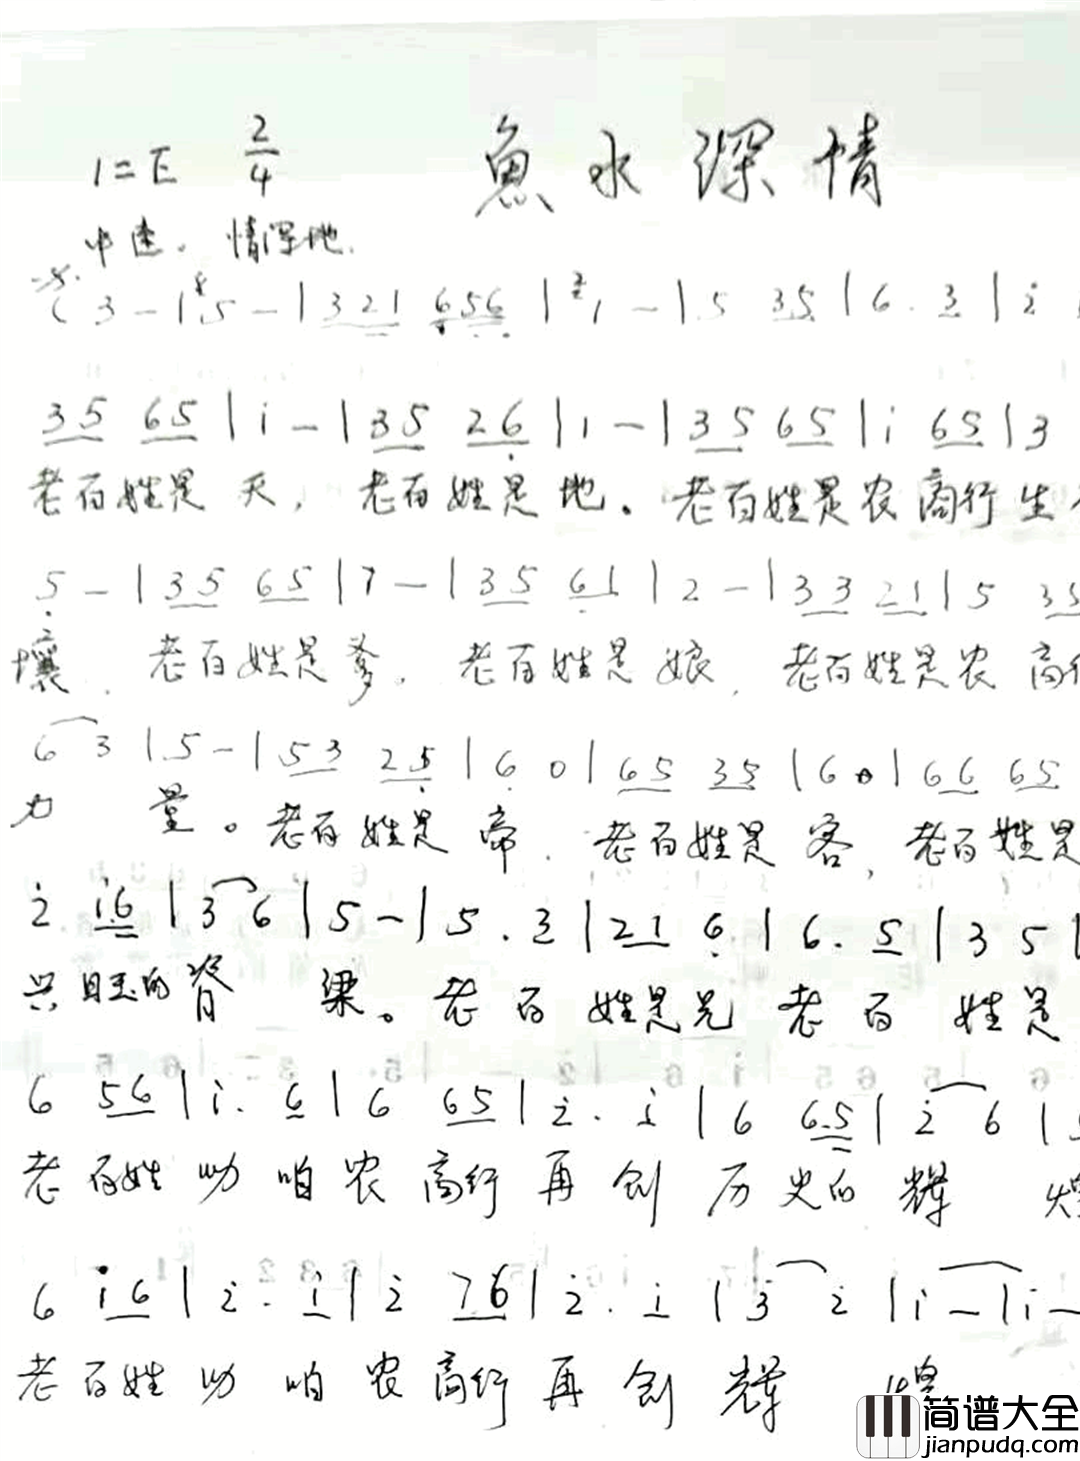 1=E 2/4 魚水深情
中速。 情深地.
(3 - | 5 - | 3 2 1 6 5 6 | 1 - | 5 3 5 | 6 . 3 | i
3 5 6 5 | i - | 3 5 2 6 | 1 - | 3 5 6 5 | i 6 5 | 3
老百姓是 天, 老百姓是 地。 老百姓是农商行 生
5 - | 3 5 6 5 | 7 - | 3 5 6 1 | 2 - | 3 3 2 1 | 5 3 5
壤. 老百姓是爹, 老百姓是 娘, 老百姓是农 商行
6 3 | 5 - | 5 3 2 5 | 6 0 | 6 5 3 5 | 6 0 | 6 6 6 5
力 量。 老百姓是 帝, 老百姓是 客, 老百姓是
2 i 6 | 3 6 | 5 - | 5 . 3 | 2 1 6 | 6 . 5 | 3 5 |
兴旺的脊 梁。 老 百 姓是兄 老 百 姓是
6 5 6 | i . 6 | 6 6 5 | 2 . i | 6 6.5 | 2 6 |
老 百姓 助 咱 农 商行 再 创 历 史的 辉 煌
6 i 6 | 2 . i | 2 7 6 | 2 . i | 3 2 | i - | i -
老 百姓 助 咱 农 商行 再 创 辉 煌
简谱大全
jianpudq.com